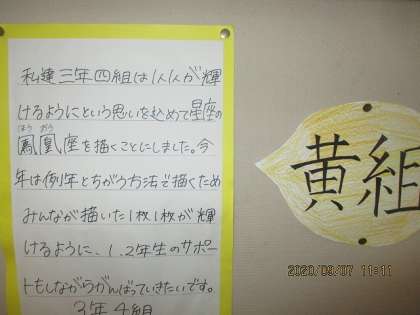 私達三年四組は1人1人が輝
けるようにという思いを込めて星座の
鳳凰座を描くことにしました。今
年は例年とちがう方法で描くため
みんなが描いた1枚1枚が輝
けるように、1.2年生のサポー
トもしながらがんばっていきたいです。
3年4組
黄組
2020/09/07 11:11